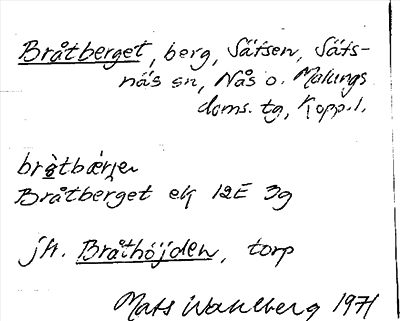 Bråtberget, berg, Sätsen, Säts-
näs sn, Nås o. Malungs
doms. tg, Kopp. l.
Bråtberget ek 12E 3g
jfr. Bråthöjden, torp
Mats Wahlberg 1971